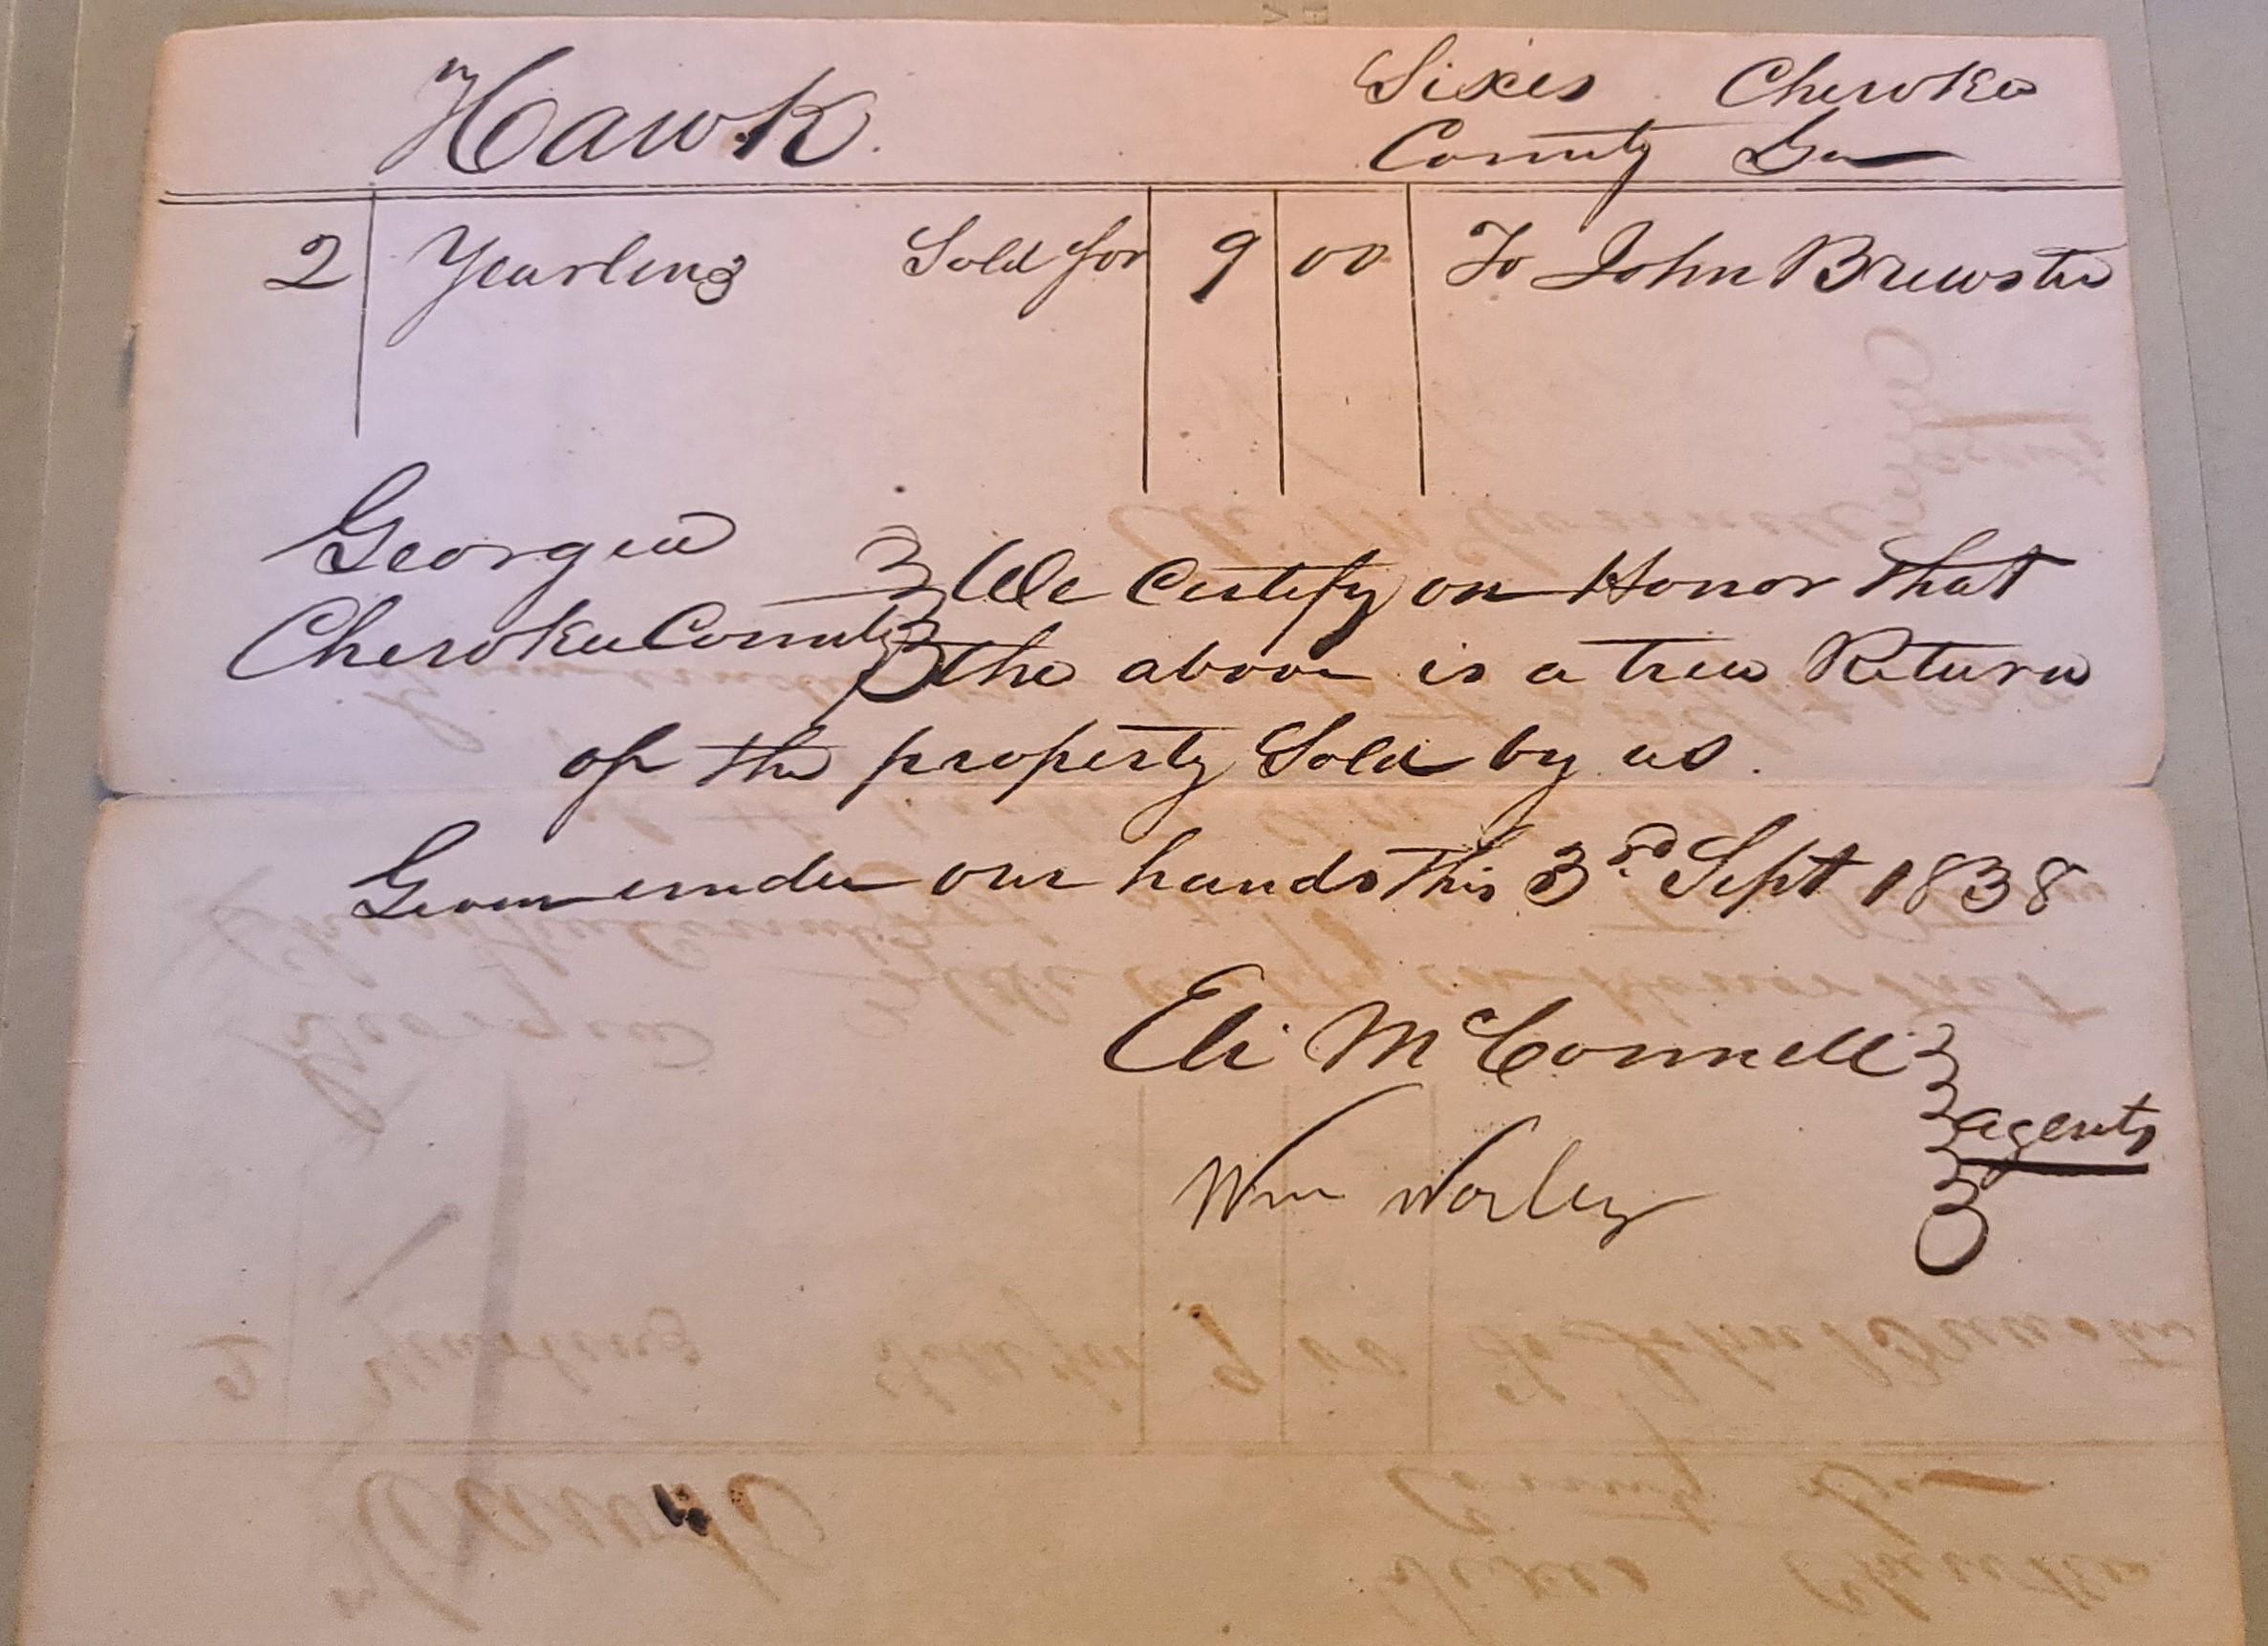 Hawk.
Sixes Cherokee
County Ga
2 Yearlings Sold for 9 00 To John Brewster
Georgia
Cherokee County We Certify on Honor that
the above is a true Return
of the property Sold by us.
Given under our hands this 3rd Sept 1838
Eli McConnell
agents
Wm Worley